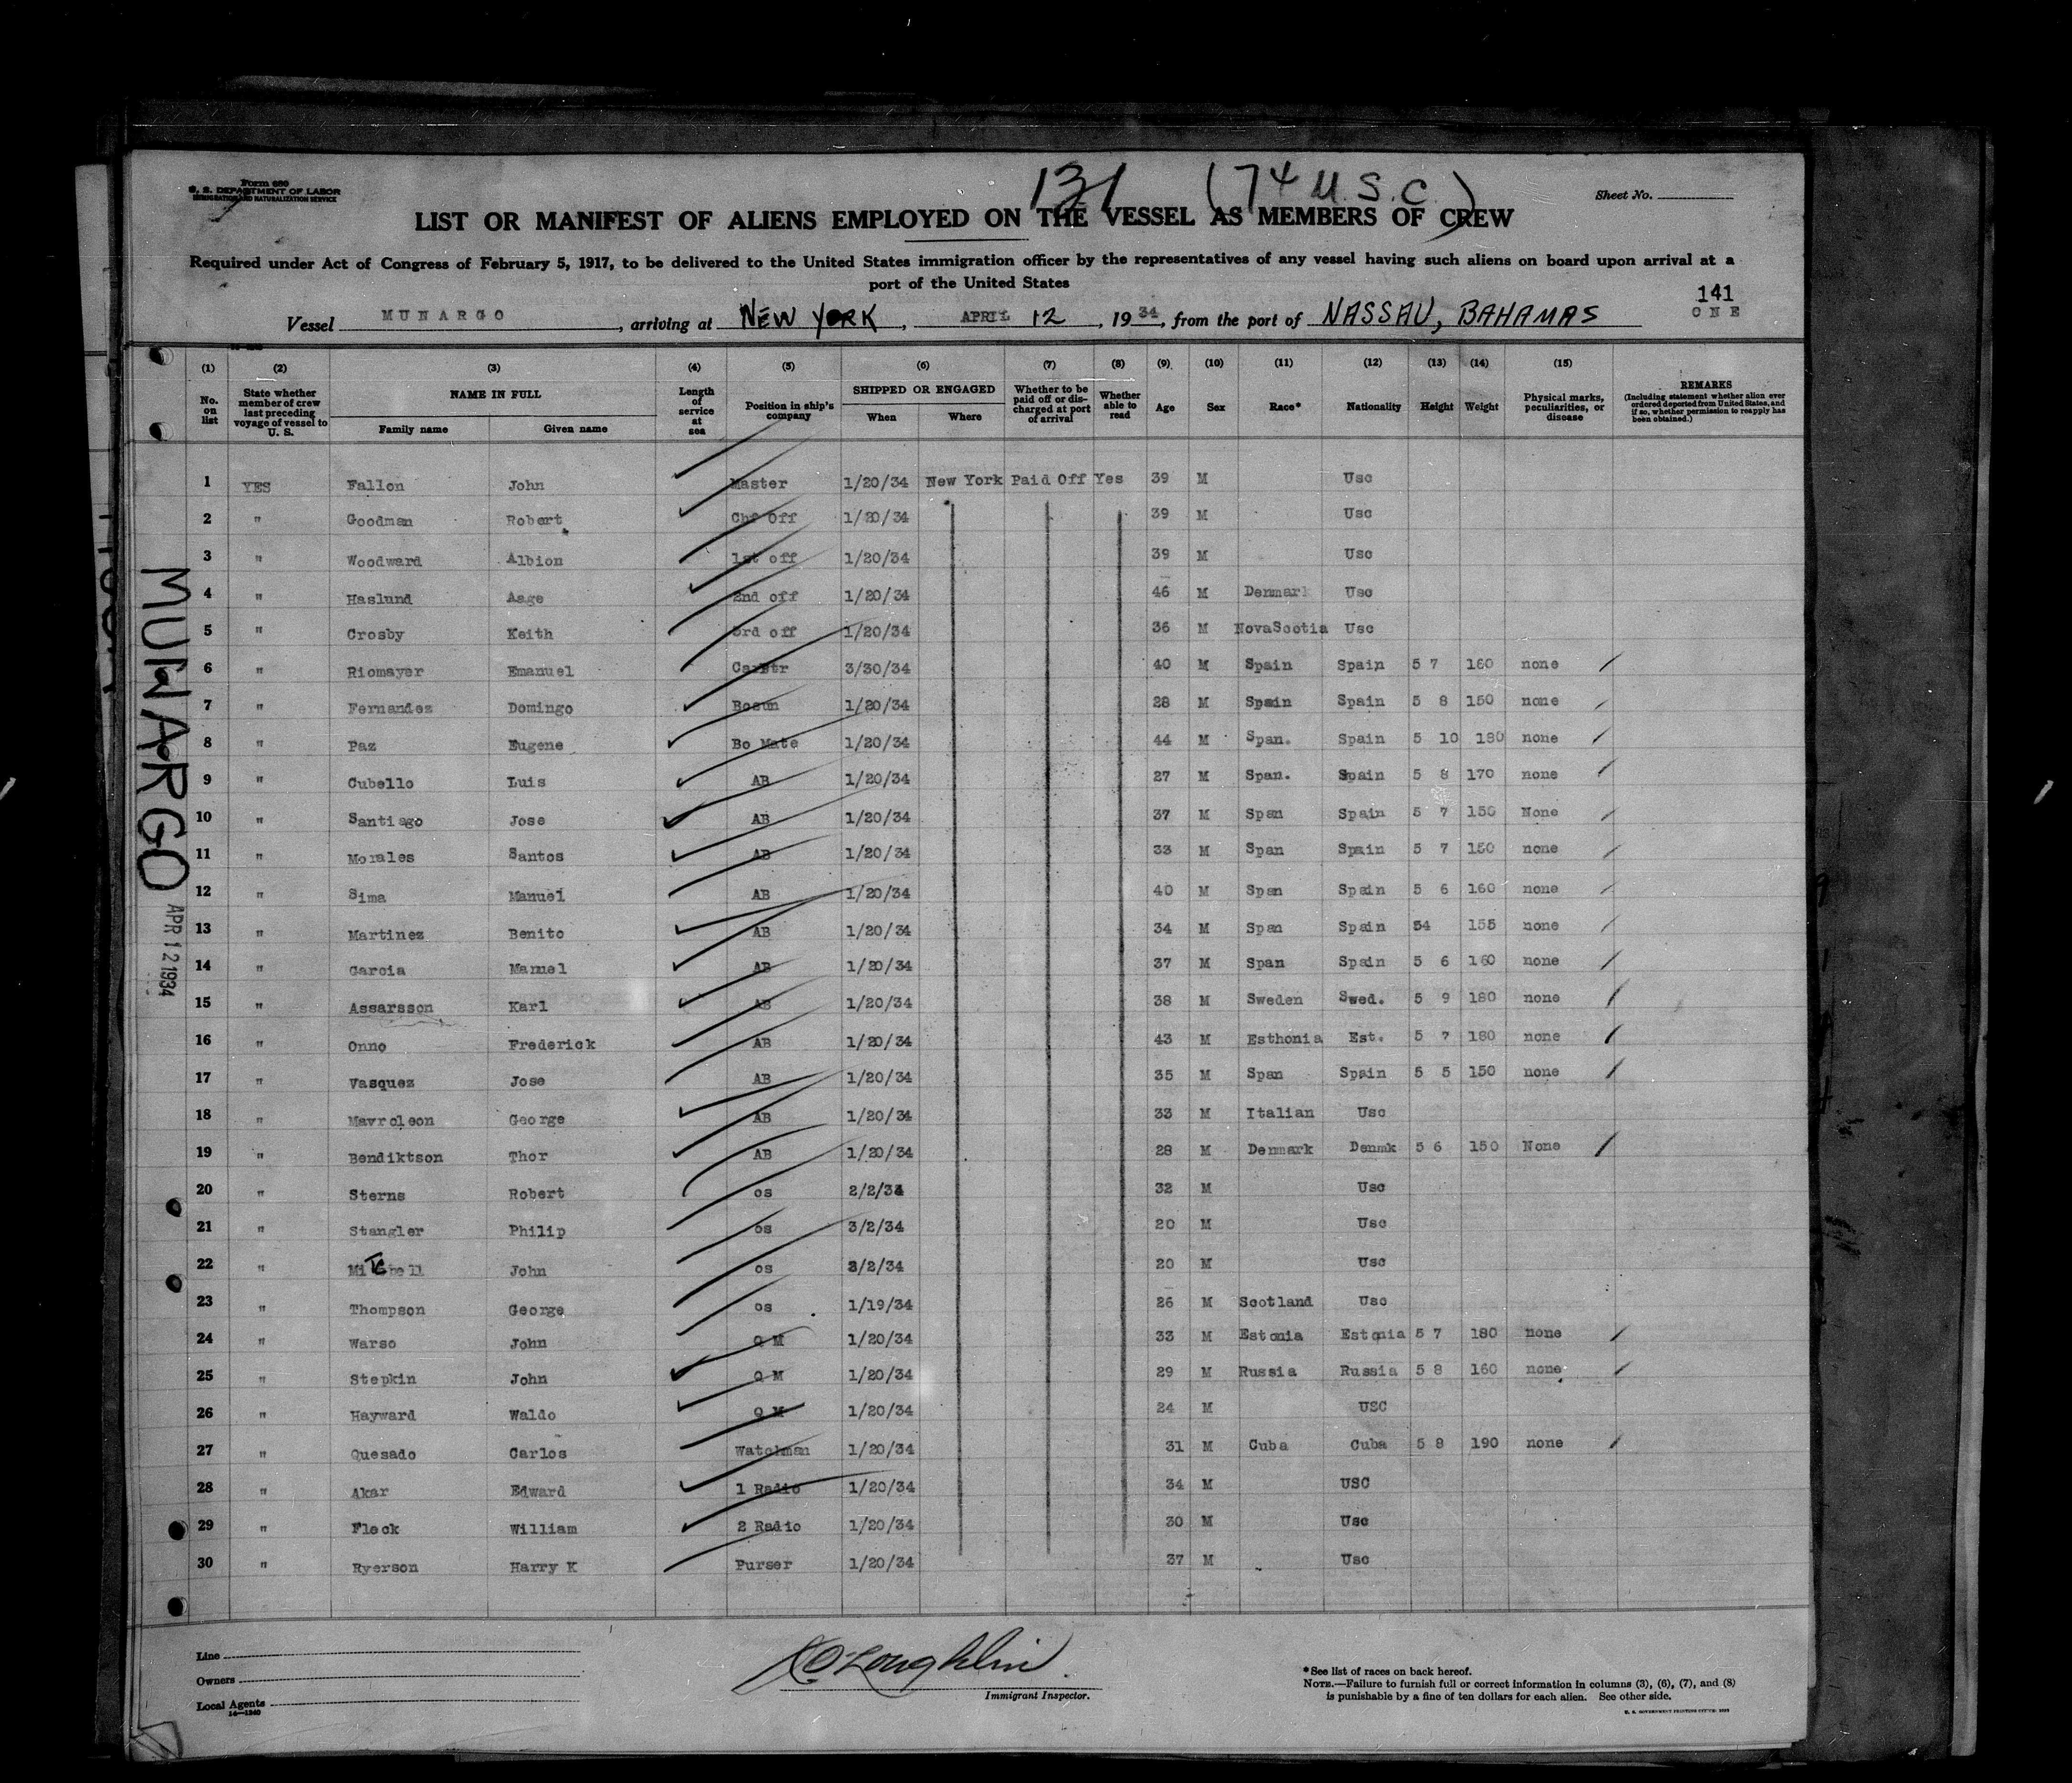 131 (74 U.S.C.)
Form 680
U. S. DEPARTMENT OF LABOR
IMMIGRATION AND NATURALIZATION SERVICE
Sheet No.
LIST OR MANIFEST OF ALIENS EMPLOYED ON THE VESSEL AS MEMBERS OF CREW
Required under Act of Congress of February 5, 1917, to be delivered to the United States immigration officer by the representatives of any vessel having such aliens on board upon arrival at a
port of the United States
141
ONE
Vessel MUNARGO, arriving at NEW YORK, APRIL 12, 1934, from the port of NASSAU, BAHAMAS
(1) (2) (3) (4) (5) (6) (7) (8) (9) (10) (11) (12) (13) (14) (15)
No. on list State whether member of crew last preceding voyage of vessel to U. S. NAME IN FULL Family name Given name Length of service at sea Position in ship's company SHIPPED OR ENGAGED When Where Whether to be paid off or discharged at port of arrival Whether able to read Age Sex Race* Nationality Height Weight Physical marks, peculiarities, or disease REMARKS (Including statement whether alien ever ordered deported from United States, and if so, whether permission to reapply has been obtained.)
1 YES Fallon John Master 1/20/34 New York Paid Off Yes 39 M Usc
2 " Goodman Robert Chf Off 1/20/34 39 M Usc
3 " Woodward Albion 1st off 1/20/34 39 M Usc
4 " Haslund Aage 2nd off 1/20/34 46 M Denmark Usc
5 " Crosby Keith 3rd off 1/20/34 36 M NovaScotia Usc
6 " Riomayer Emanuel 3/30/34 40 M Spain Spain 5 7 160 none
7 " Fernandez Domingo Bosun 1/20/34 28 M Spain Spain 5 8 150 none
8 " Paz Eugene Bo Mate 1/20/34 44 M Span. Spain 5 10 180 none
9 " Cubello Luis AB 1/20/34 27 M Span. Spain 5 8 170 none
10 " Santiago Jose AB 1/20/34 37 M Span Spain 5 7 150 None
11 " Morales Santos AB 1/20/34 33 M Span Spain 5 7 150 none
12 " Sima Manuel AB 1/20/34 40 M Span Spain 5 6 160 none
13 " Martinez Benito AB 1/20/34 34 M Span Spain 54 155 none
14 " Garcia Manuel AB 1/20/34 37 M Span Spain 5 6 160 none
15 " Assarsson Karl AB 1/20/34 38 M Sweden Swed. 5 9 180 none
16 " Onno Frederick AB 1/20/34 43 M Esthonia Est. 5 7 180 none
17 " Vasquez Jose AB 1/20/34 35 M Span Spain 5 5 150 none
18 " Mavroleon George AB 1/20/34 33 M Italian Usc
19 " Bendiktson Thor AB 1/20/34 28 M Denmark Denmk 5 6 150 None
20 " Sterns Robert os 2/2/34 32 M Usc
21 " Stangler Philip os 3/2/34 20 M Usc
22 " Mitchell John os 3/2/34 20 M Usc
23 " Thompson George os 1/19/34 26 M Scotland Usc
24 " Warso John Q M 1/20/34 33 M Estonia Estonia 5 7 180 none
25 " Stepkin John Q M 1/20/34 29 M Russia Russia 5 8 160 none
26 " Hayward Waldo Q M 1/20/34 24 M USC
27 " Quesado Carlos Watchman 1/20/34 31 M Cuba Cuba 5 8 190 none
28 " Akar Edward 1 Radio 1/20/34 34 M USC
29 " Fleck William 2 Radio 1/20/34 30 M Usc
30 " Ryerson Harry K Purser 1/20/34 37 M Usc
MUNARGO
APR 12 1934
Line
Owners
Local Agents
14—1240
O'Loughlin
Immigrant Inspector.
*See list of races on back hereof.
NOTE.—Failure to furnish full or correct information in columns (3), (6), (7), and (8)
is punishable by a fine of ten dollars for each alien. See other side.